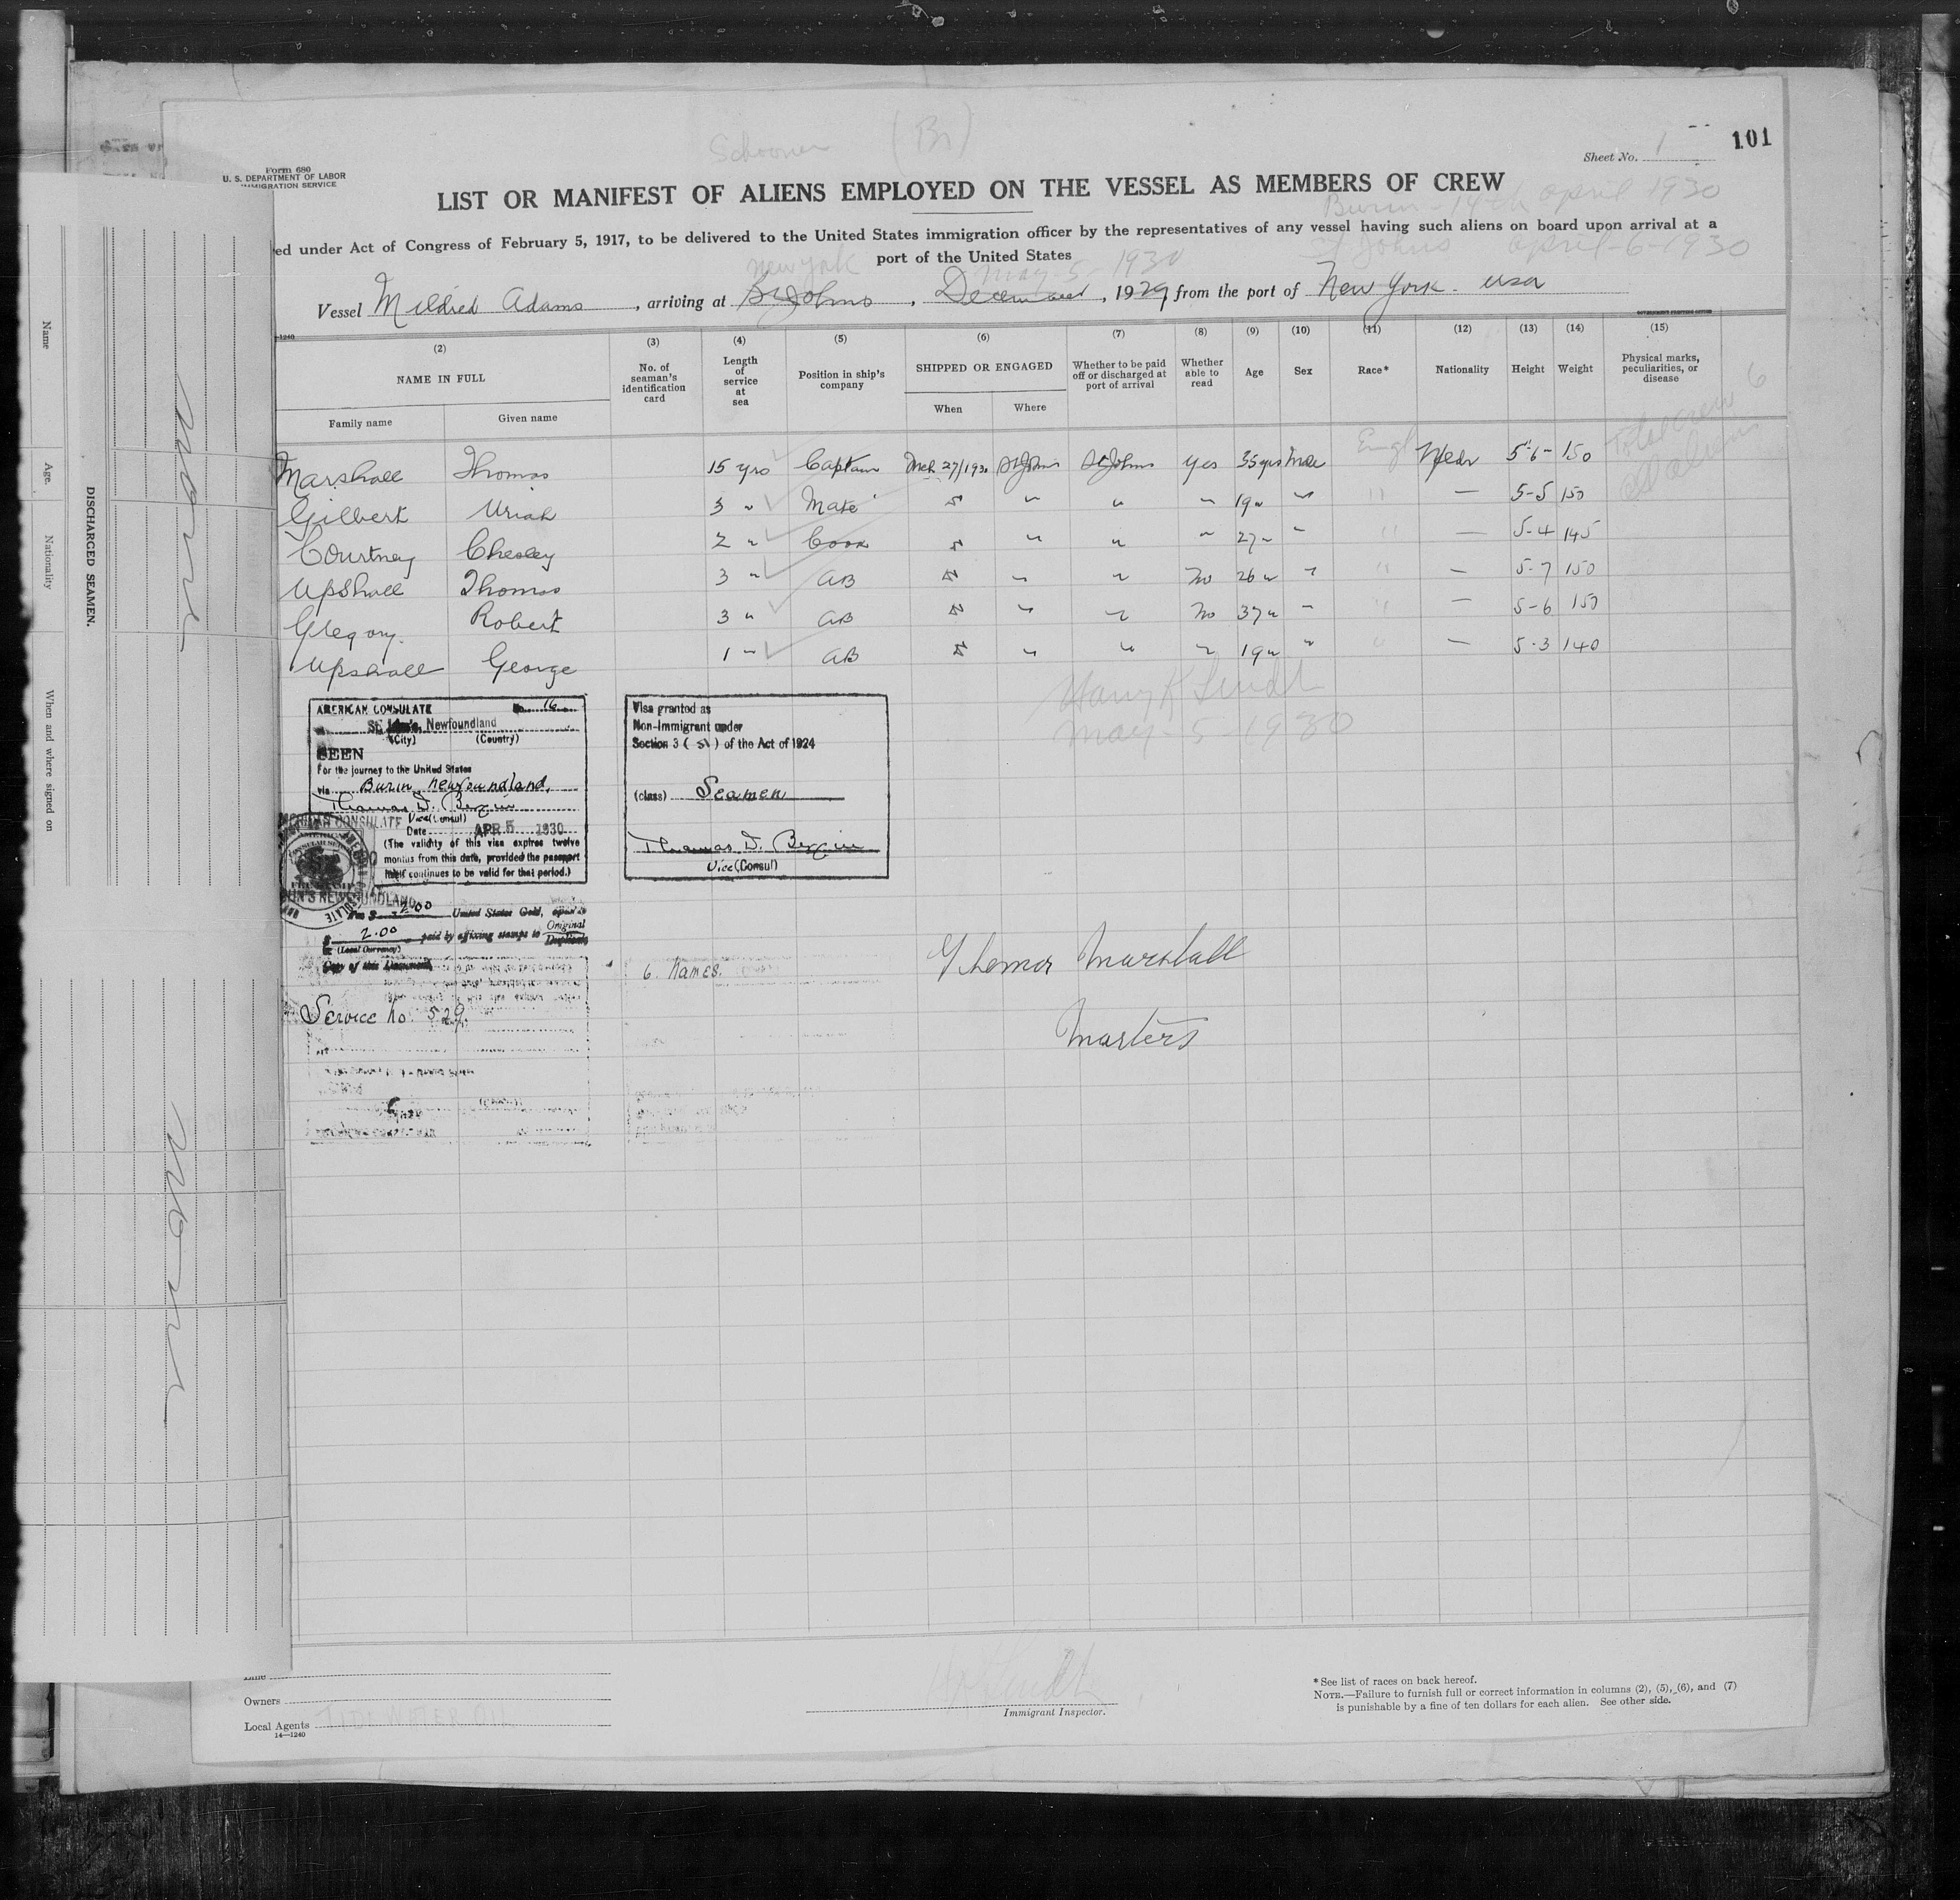 Schooner (Br)
Sheet No. 1
101
Form 680
U. S. DEPARTMENT OF LABOR
IMMIGRATION SERVICE
LIST OR MANIFEST OF ALIENS EMPLOYED ON THE VESSEL AS MEMBERS OF CREW
Burin - 14th april 1930
ed under Act of Congress of February 5, 1917, to be delivered to the United States immigration officer by the representatives of any vessel having such aliens on board upon arrival at a
St Johns april-6-1930
port of the United States
New York May-5-1930
Vessel Mildred Adams, arriving at St Johns, December, 1929, from the port of New York. usa
(2) (3) (4) (5) (6) (7) (8) (9) (10) (11) (12) (13) (14) (15)
NAME IN FULL
Family name Given name
No. of seaman's identification card
Length of service at sea
Position in ship's company
SHIPPED OR ENGAGED
When Where
Whether to be paid off or discharged at port of arrival
Whether able to read
Age
Sex
Race*
Nationality
Height
Weight
Physical marks, peculiarities, or disease
Total crew 6
Marshall Thomas 15 yrs Captain Mch 27/1930 St Johns St Johns yes 35 yrs male Engl 5-6- 150
Gilbert Uriah 3 " Mate " " " " 19 " " " — 5-5 150
Courtney Chesley 2 " Cook " " " " 27 " " " — 5-4 145
Upshall Thomas 3 " AB " " " No 26 " " " — 5-7 150
Gregory. Robert 3 " AB " " " No 37 " " " — 5-6 150
Upshall George 1 " AB " " " " 19 " " " — 5-3 140
Harry R Lindt
May-5-1930
AMERICAN CONSULATE No. 16
St. John's, Newfoundland
(City) (Country)
SEEN
For the journey to the United States
via Burin, Newfoundland.
Thomas D. Bergin
Vice (Consul)
Date APR 5 1930
(The validity of this visa expires twelve
months from this date, provided the passport
itself continues to be valid for that period.)
Visa granted as
Non-Immigrant under
Section 3 (5) of the Act of 1924
(class) Seamen
Thomas D. Bergin
Vice (Consul)
2.00 United States Gold,
$ 2.00 paid by affixing stamps to Original
(Local Currency) Duplicate
Copy of this Document
6 Names.
Service No. 529.
Thomas Marshall
Masters
Name
Age.
Nationality
When and where signed on
DISCHARGED SEAMEN.
Line
Owners
Local Agents TIDE WATER OIL
14—1240
Immigrant Inspector.
*See list of races on back hereof.
NOTE.—Failure to furnish full or correct information in columns (2), (5), (6), and (7)
is punishable by a fine of ten dollars for each alien. See other side.